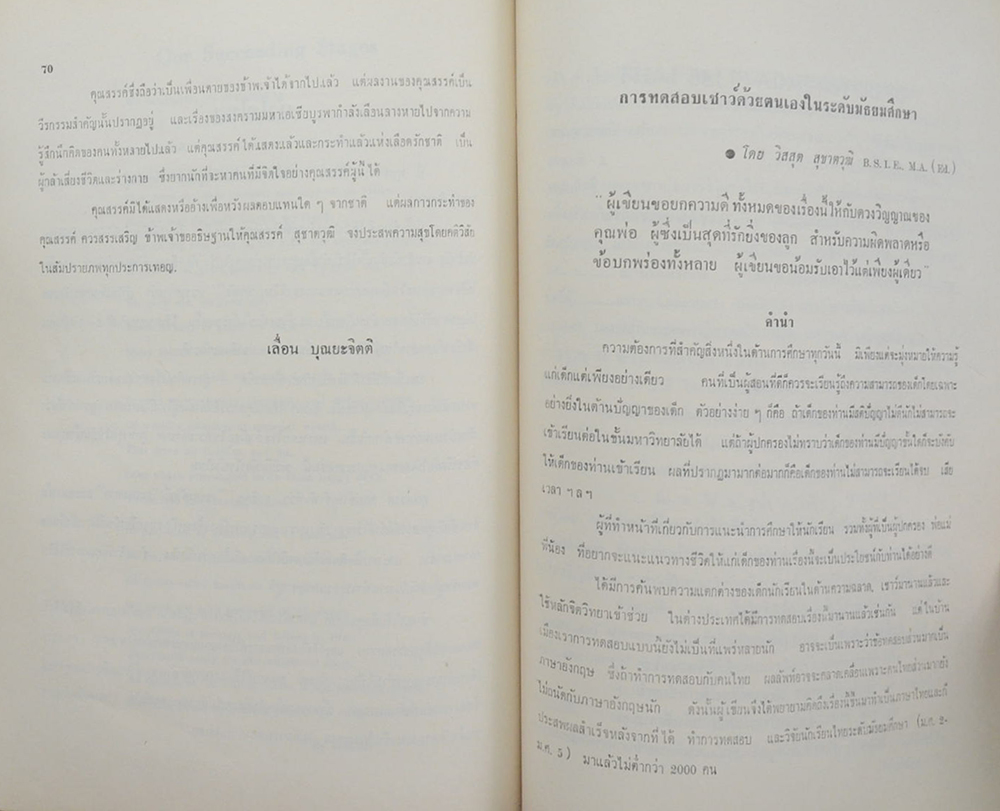 70
คุณสรรค์ซึ่งถือว่าเป็นเพื่อนตายของข้าพเจ้าได้จากไปแล้ว แต่ผลงานของคุณสรรค์เป็น
วีรกรรมสำคัญนั้นปรากฏอยู่ และเรื่องของสงครามมหาเอเซียบูรพากำลังเลือนลางหายไปจากความ
รู้สึกนึกคิดของคนทั้งหลายไปแล้ว แต่คุณสรรค์ได้แสดงแล้วและกระทำแล้วแห่งเลือดรักชาติ เป็น
ผู้กล้าเสี่ยงชีวิตและร่างกาย ซึ่งยากนักที่จะหาคนที่มีจิตใจอย่างคุณสรรค์ผู้นี้ได้
คุณสรรค์มิได้แสดงหรืออ้างเพื่อหวังผลตอบแทนใด ๆ จากชาติ แต่ผลการกระทำของ
คุณสรรค์ ควรสรรเสริญ ข้าพเจ้าขออธิษฐานให้คุณสรรค์ สุชาตวุฒิ จงประสพความสุขโดยคติวิสัย
ในสัมปรายภพทุกประการเทอญ.
เลื่อน บุณยะจิตติ
การทดสอบเชาว์ด้วยตนเองในระดับมัธยมศึกษา
● โดย วิสสุต สุชาตวุฒิ B.S.I.E., M.A. (Ed.)
"ผู้เขียนขอยกความดีทั้งหมดของเรื่องนี้ให้กับดวงวิญญาณของ
คุณพ่อ ผู้ซึ่งเป็นสุดที่รักยิ่งของลูก สำหรับความผิดพลาดหรือ
ข้อบกพร่องทั้งหลาย ผู้เขียนขอน้อมรับเอาไว้แต่เพียงผู้เดียว"
คำนำ
ความต้องการที่สำคัญสิ่งหนึ่งในด้านการศึกษาทุกวันนี้ มิเพียงแต่จะมุ่งหมายให้ความรู้
แก่เด็กแต่เพียงอย่างเดียว คนที่เป็นผู้สอนที่ดีก็ควรจะเรียนรู้ถึงความสามารถของเด็กโดยเฉพาะ
อย่างยิ่งในด้านปัญญาของเด็ก ตัวอย่างง่าย ๆ ก็คือ ถ้าเด็กของท่านมีสติปัญญาไม่ดีนักไม่สามารถจะ
เข้าเรียนต่อในชั้นมหาวิทยาลัยได้ แต่ถ้าผู้ปกครองไม่ทราบว่าเด็กของท่านมีปัญญาขั้นใดก็จะบังคับ
ให้เด็กของท่านเข้าเรียน ผลที่ปรากฏมามากต่อมากก็คือเด็กของท่านไม่สามารถจะเรียนได้จบ เสีย
เวลา ฯลฯ
ผู้ที่ทำหน้าที่เกี่ยวกับการแนะนำการศึกษาให้นักเรียน รวมทั้งผู้ที่เป็นผู้ปกครอง พ่อแม่
พี่น้อง ที่อยากจะแนะแนวทางชีวิตให้แก่เด็กของท่านเรื่องนี้จะเป็นประโยชน์กับท่านได้อย่างดี
ได้มีการค้นพบความแตกต่างของเด็กนักเรียนในด้านความฉลาด, เชาว์มานานแล้วและ
ใช้หลักจิตวิทยาเข้าช่วย ในต่างประเทศได้มีการทดสอบเรื่องนี้มานานแล้วเช่นกัน แต่ในบ้าน
เมืองเราการทดสอบแบบนี้ยังไม่เป็นที่แพร่หลายนัก อาจจะเป็นเพราะว่าข้อทดสอบส่วนมากเป็น
ภาษาอังกฤษ ซึ่งถ้าทำการทดสอบกับคนไทย ผลลัพท์อาจจะคลาดเคลื่อนเพราะคนไทยส่วนมากยัง
ไม่ถนัดกับภาษาอังกฤษนัก ดังนั้นผู้เขียนจึงได้พยายามคิดถึงเรื่องนี้ขึ้นมาทำเป็นภาษาไทยและก็
ประสพผลสำเร็จหลังจากที่ได้ ทำการทดสอบ และวิจัยนักเรียนไทยระดับมัธยมศึกษา (ม.ศ. 2-
ม.ศ. 5) มาแล้วไม่ต่ำกว่า 2000 คน